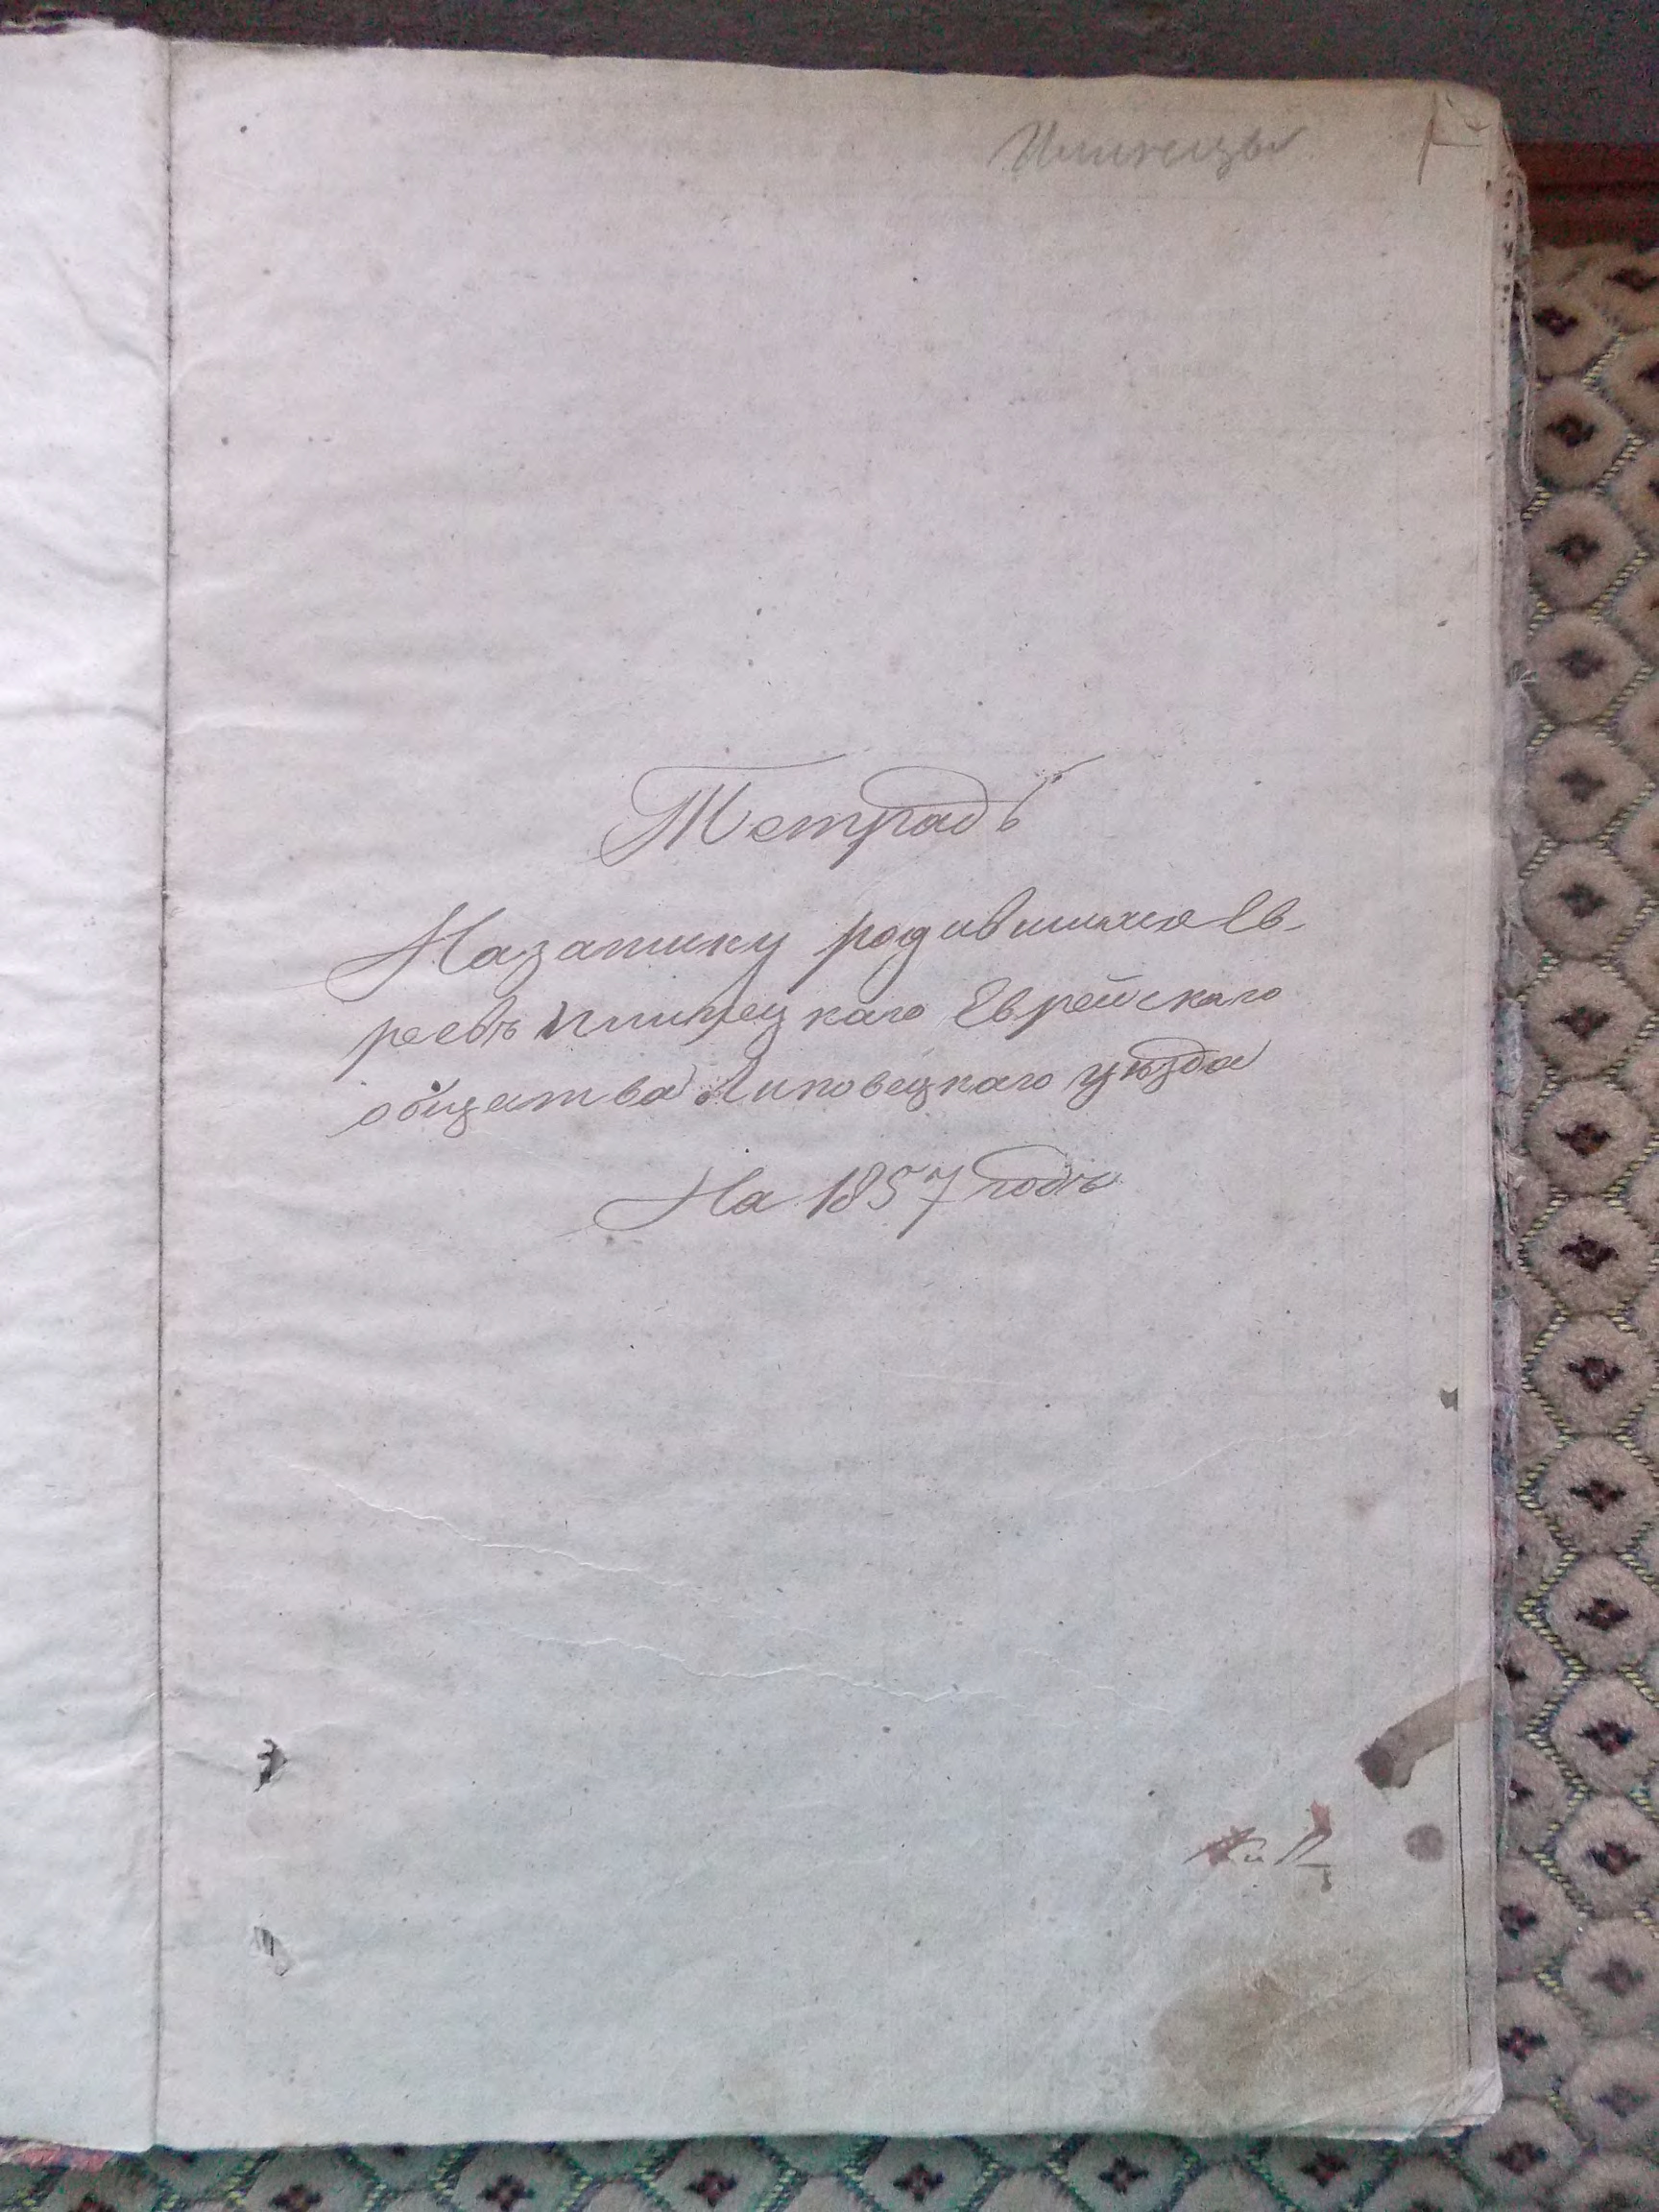 Илинецы
Тетрадь
На записку родившихся Ев-
реевъ Илинецкаго Еврейскаго
общества Липовецкаго уѣзда
На 1857 годъ